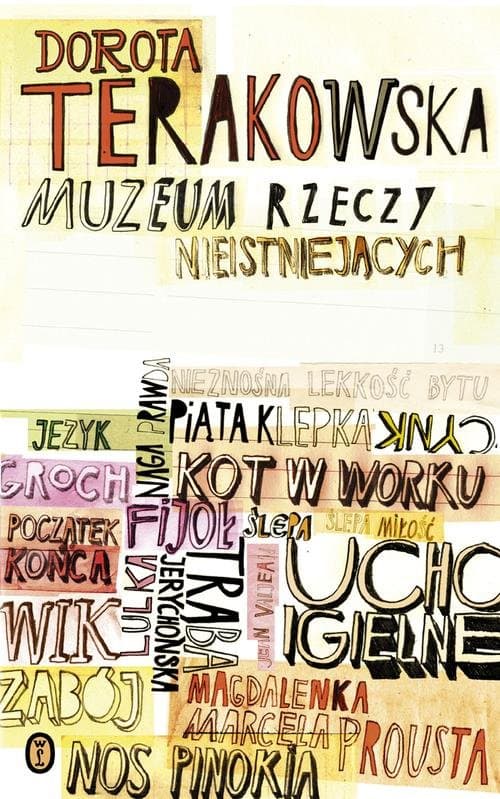 DOROTA
TERAKOWSKA
MUZEUM RZECZY
NIEISTNIEJĄCYCH
13
NIEZNOŚNA LEKKOŚĆ BYTU
JĘZYK
NAGA PRAWDA
PIĄTA KLEPKA
CYNK
GROCH
KOT W WORKU
POCZĄTEK
KOŃCA
FIJOŁ
ŚLEPA
ŚLEPA MIŁOŚĆ
WIK
LULKA
TRĄBA
JERYCHOŃSKA
JEAN VALJEAN
UCHO
IGIELNE
ZABÓJ
MAGDALENKA
MARCELA PROUSTA
NOS PINOKIA
W
L